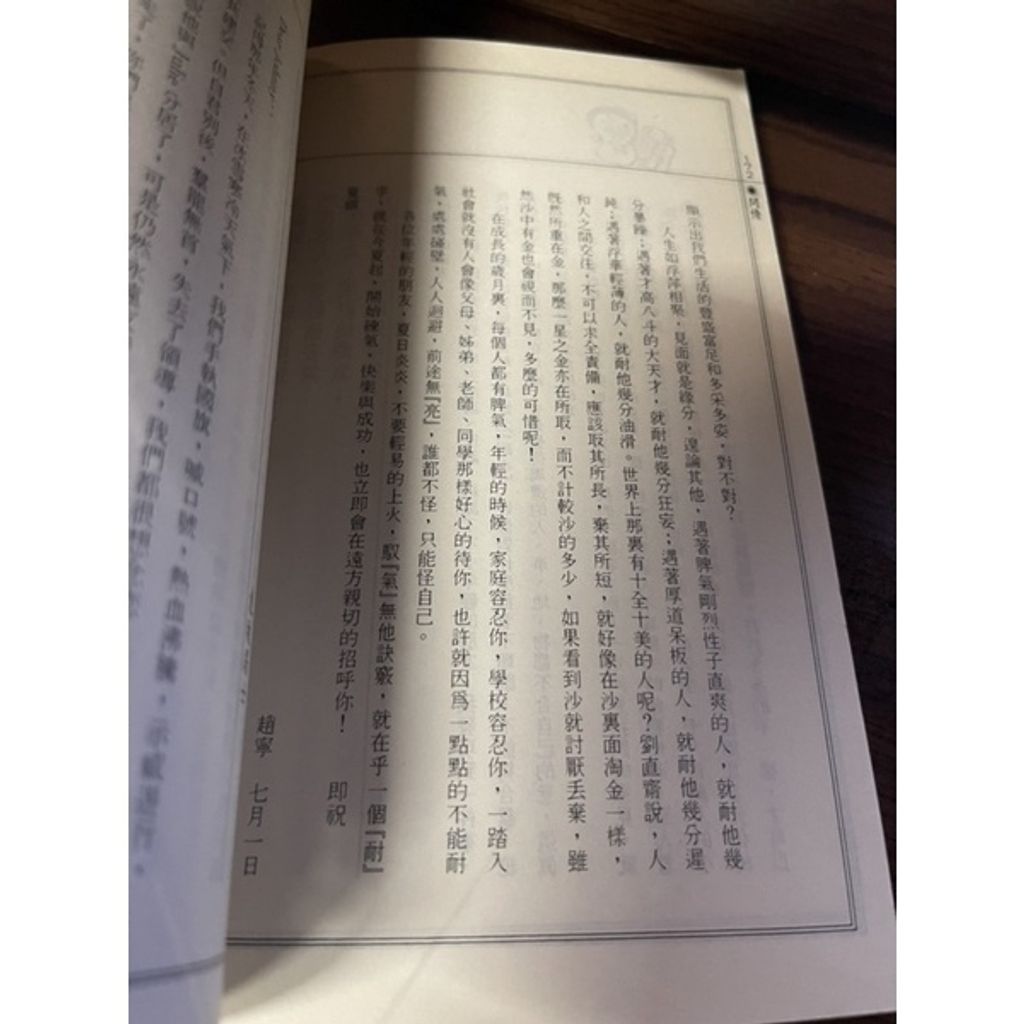 172 ●
顯示出我們生活的豐盛富足和多采多姿，對不對？
人生如浮萍相聚，見面就是緣分，遑論其他，遇著脾氣剛烈性子直爽的人，就耐他幾
分暴躁；遇著才高八斗的大天才，就耐他幾分狂妄；遇著厚道呆板的人，就耐他幾分遲
鈍；遇著浮華輕薄的人，就耐他幾分油滑。世界上那裏有十全十美的人呢？劉直齋說，人
和人之間交往，不可以求全責備，應該取其所長，棄其所短，就好像在沙裏面淘金一樣，
既然所重在金，那麼一星之金亦在所取，而不計較沙的多少，如果看到沙就討厭丟棄，雖
然沙中有金也會視而不見，多麼的可惜呢！
在成長的歲月裏，每個人都有脾氣，年輕的時候，家庭容忍你，學校容忍你，一踏入
社會就沒有人會像父母、姊弟、老師、同學那樣好心的待你，也許就因爲一點點的不能耐
氣，處處碰壁，人人迴避，前途無『亮』，誰都不怪，只能怪自己。
各位年輕的朋友，夏日炎炎，不要輕易的上火，馭『氣』無他訣竅，就在乎一個『耐』
字，就從今夏起，開始練氣，快樂與成功，也立即會在遠方親切的招呼你！
即祝
夏祺
趙寧 七月一日
天氣下，我們手執國旗，喊口號，熱血沸騰，示威遊行。
但自君別後，羣龍無首，失去了領導，我們都很
說他與Julie分居了，可是仍然